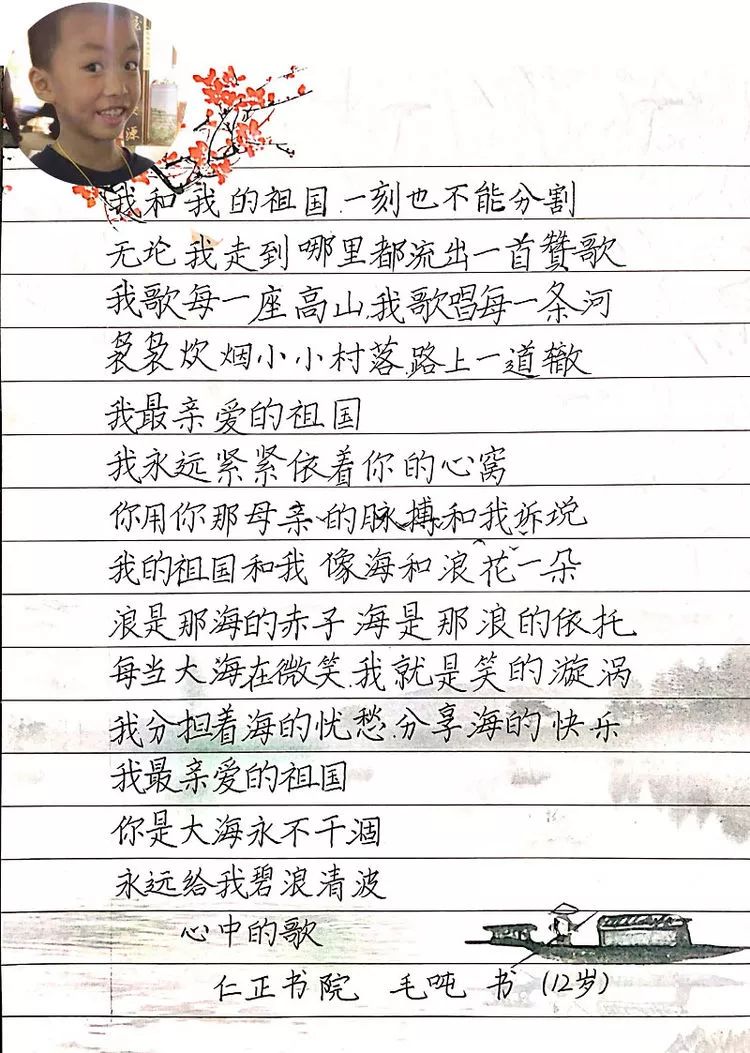 我和我的祖国一刻也不能分割
无论我走到哪里都流出一首赞歌
我歌每一座高山,我歌唱每一条河
袅袅炊烟小小村落,路上一道辙
我最亲爱的祖国
我永远紧紧依着你的心窝
你用你那母亲的脉搏和我诉说
我的祖国和我像海和浪花一朵
浪是那海的赤子海是那浪的依托
每当大海在微笑,我就是笑的漩涡
我分担着海的忧愁,分享海的快乐
我最亲爱的祖国
你是大海永不干涸
永远给我碧浪清波
心中的歌
仁正书院 毛吨 书(12岁)